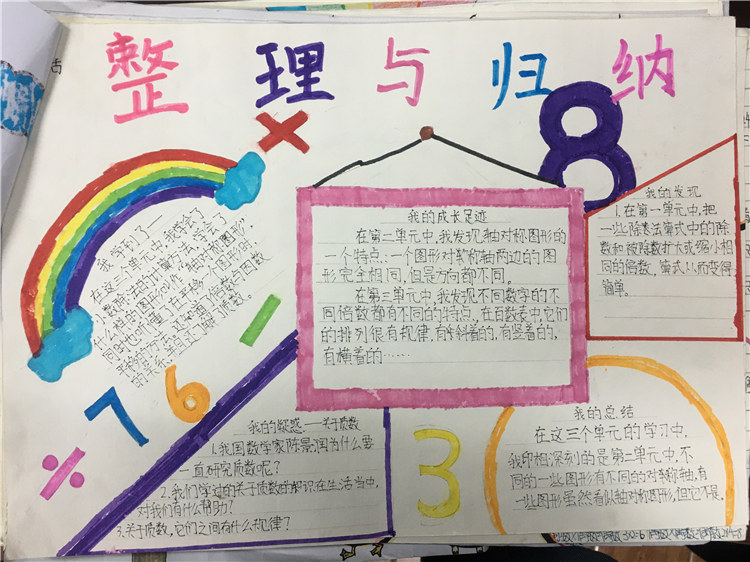 整理与归纳
我学到了——
在这三个单元中,我学会了
小数除法的计算方法,学会了
什么样的图形叫作"轴对称图形",
同时也听懂了
平移的方法,还知道了倍数与因数
的关系,并且还了解了质数。
我的成长足迹
在第二单元中,我发现轴对称图形的
一个特点:一个图形对称轴两边的图
形完全相同,但是方向都不同。
在第三单元中,我发现不同数字的不
同倍数都有不同的特点,在百数表中,它们
的排列很有规律,有斜着的,有竖着的,
有横着的……
我的发现
1.在第一单元中,把
一些除法算式中的除
数和被除数扩大或缩小相
同的倍数,算式从而变得
简单。
我的疑惑——关于质数
1.我国数学家陈景润为什么要
一直研究质数呢?
2.我们学过的关于质数的知识在生活当中,
对我们有什么帮助?
3.关于质数,它们之间有什么规律?
我的总结
在这三个单元的学习中,
我印相深刻的是第二单元中,不
同的一些图形有不同的对称轴,有
一些图形虽然看似轴对称图形,但它不是。
8
7
6
3